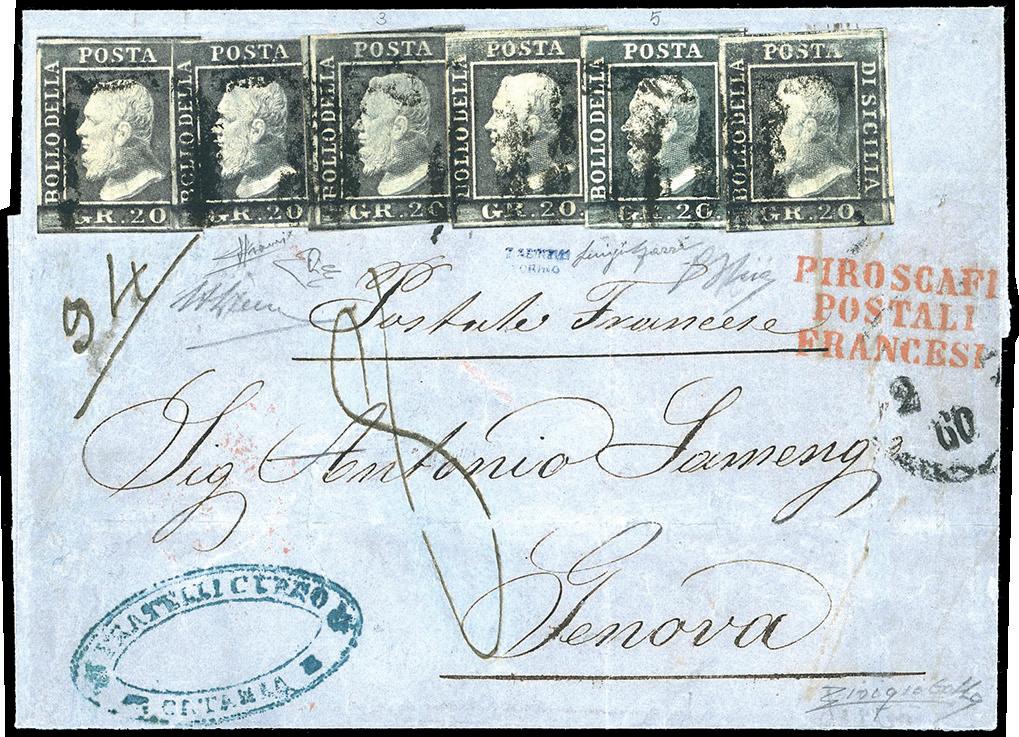 3 5
POSTA POSTA POSTA POSTA POSTA POSTA
BOLLO DELLA BOLLO DELLA BOLLO DELLA BOLLO DELLA BOLLO DELLA BOLLO DELLA DI SICILIA
GR. 20 GR. 20 GR. 20 GR. 20. GR. 20. GR. 20.
94
TORINO
PIROSCAFI
POSTALI
FRANCESI
Postale Francese
2
60
Sig Antonio Sameng
Genova
FRATELLI CUPRO
CATANIA